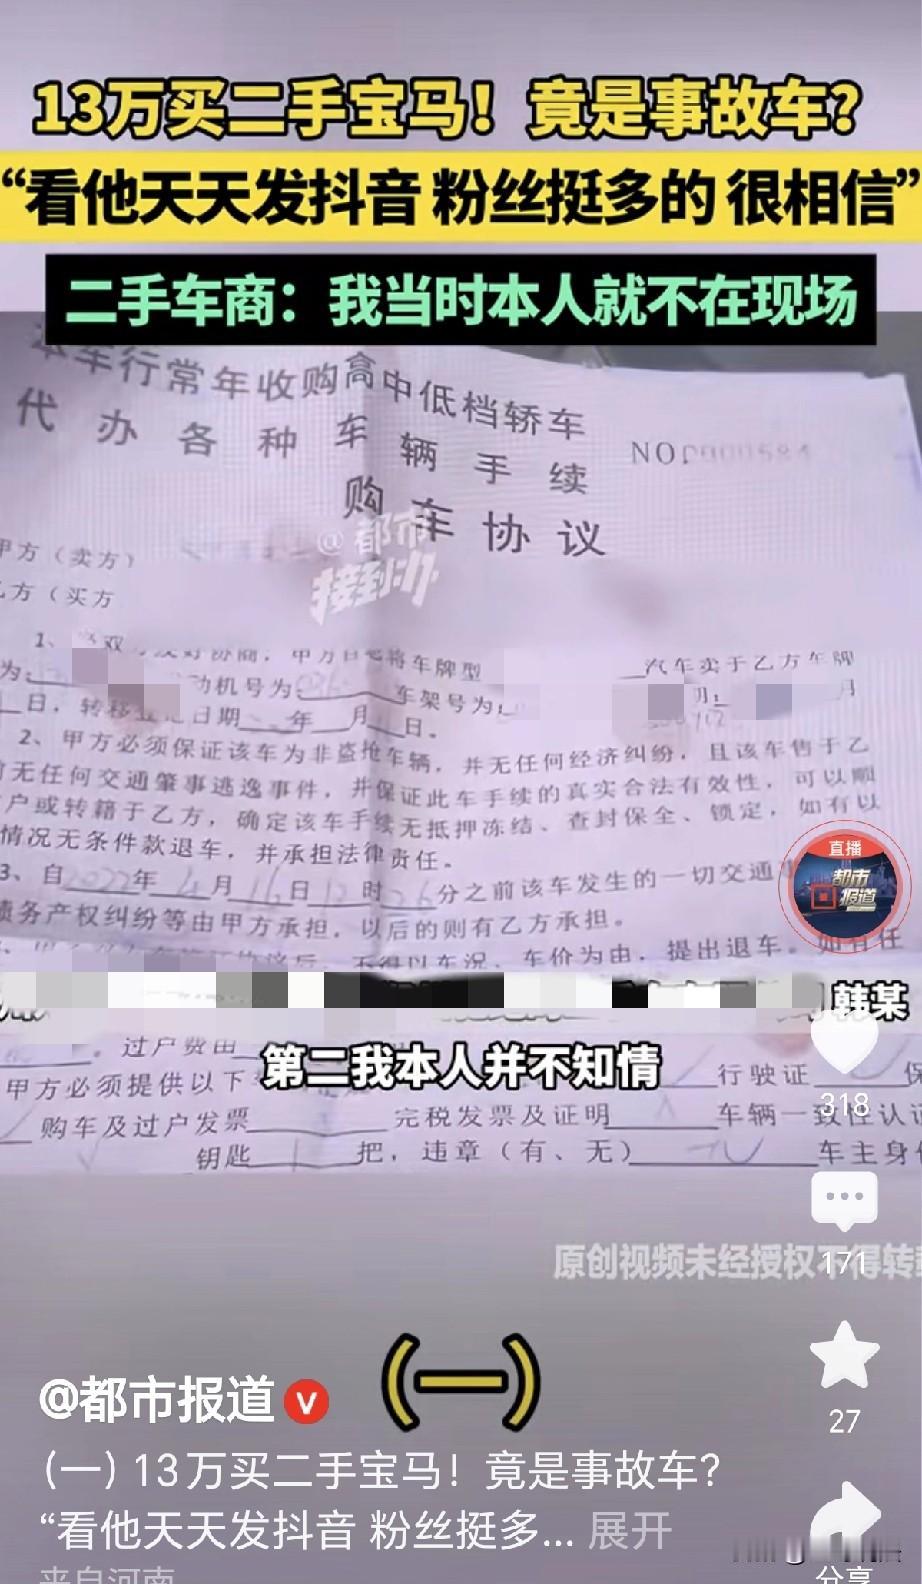 13万买二手宝马！竟是事故车？
“看他天天发抖音 粉丝挺多的 很相信”
二手车商：我当时本人就不在现场
本车行常年收购高中低档轿车
代办各种车辆手续
NO.0000584
购车协议
@都市
接到办
甲方（卖方）
乙方（买方
1、 双方友好协商，甲方自愿将车牌型
汽车卖于乙方车牌
为：
动机号为
车架号为：
月
日，转移登记日期 年 月 日。
2、甲方必须保证该车为非盗抢车辆，并无任何经济纠纷，且该车售于乙
前无任何交通肇事逃逸事件，并保证此车手续的真实合法有效性，可以顺
户或转籍于乙方，确定该车手续无抵押冻结、查封保全、锁定，如有以
情况无条件款退车，并承担法律责任。
直播
都市
报道
3、自2022年4月16日12时26分之前该车发生的一切交通事
债务产权纠纷等由甲方承担，以后的则有乙方承担。
不得以车况、车价为由，提出退车。如有任
韩某
。过户费由
第二我本人并不知情
甲方必须提供以下
行驶证
保
318
购车及过户发票
完税发票及证明
车辆一致性认证
钥匙1把，违章（有、无）
车主身份
171
原创视频未经授权不得转载
（一）
@都市报道
27
(一) 13万买二手宝马！竟是事故车？
“看他天天发抖音 粉丝挺多... 展开
来自河南
分享